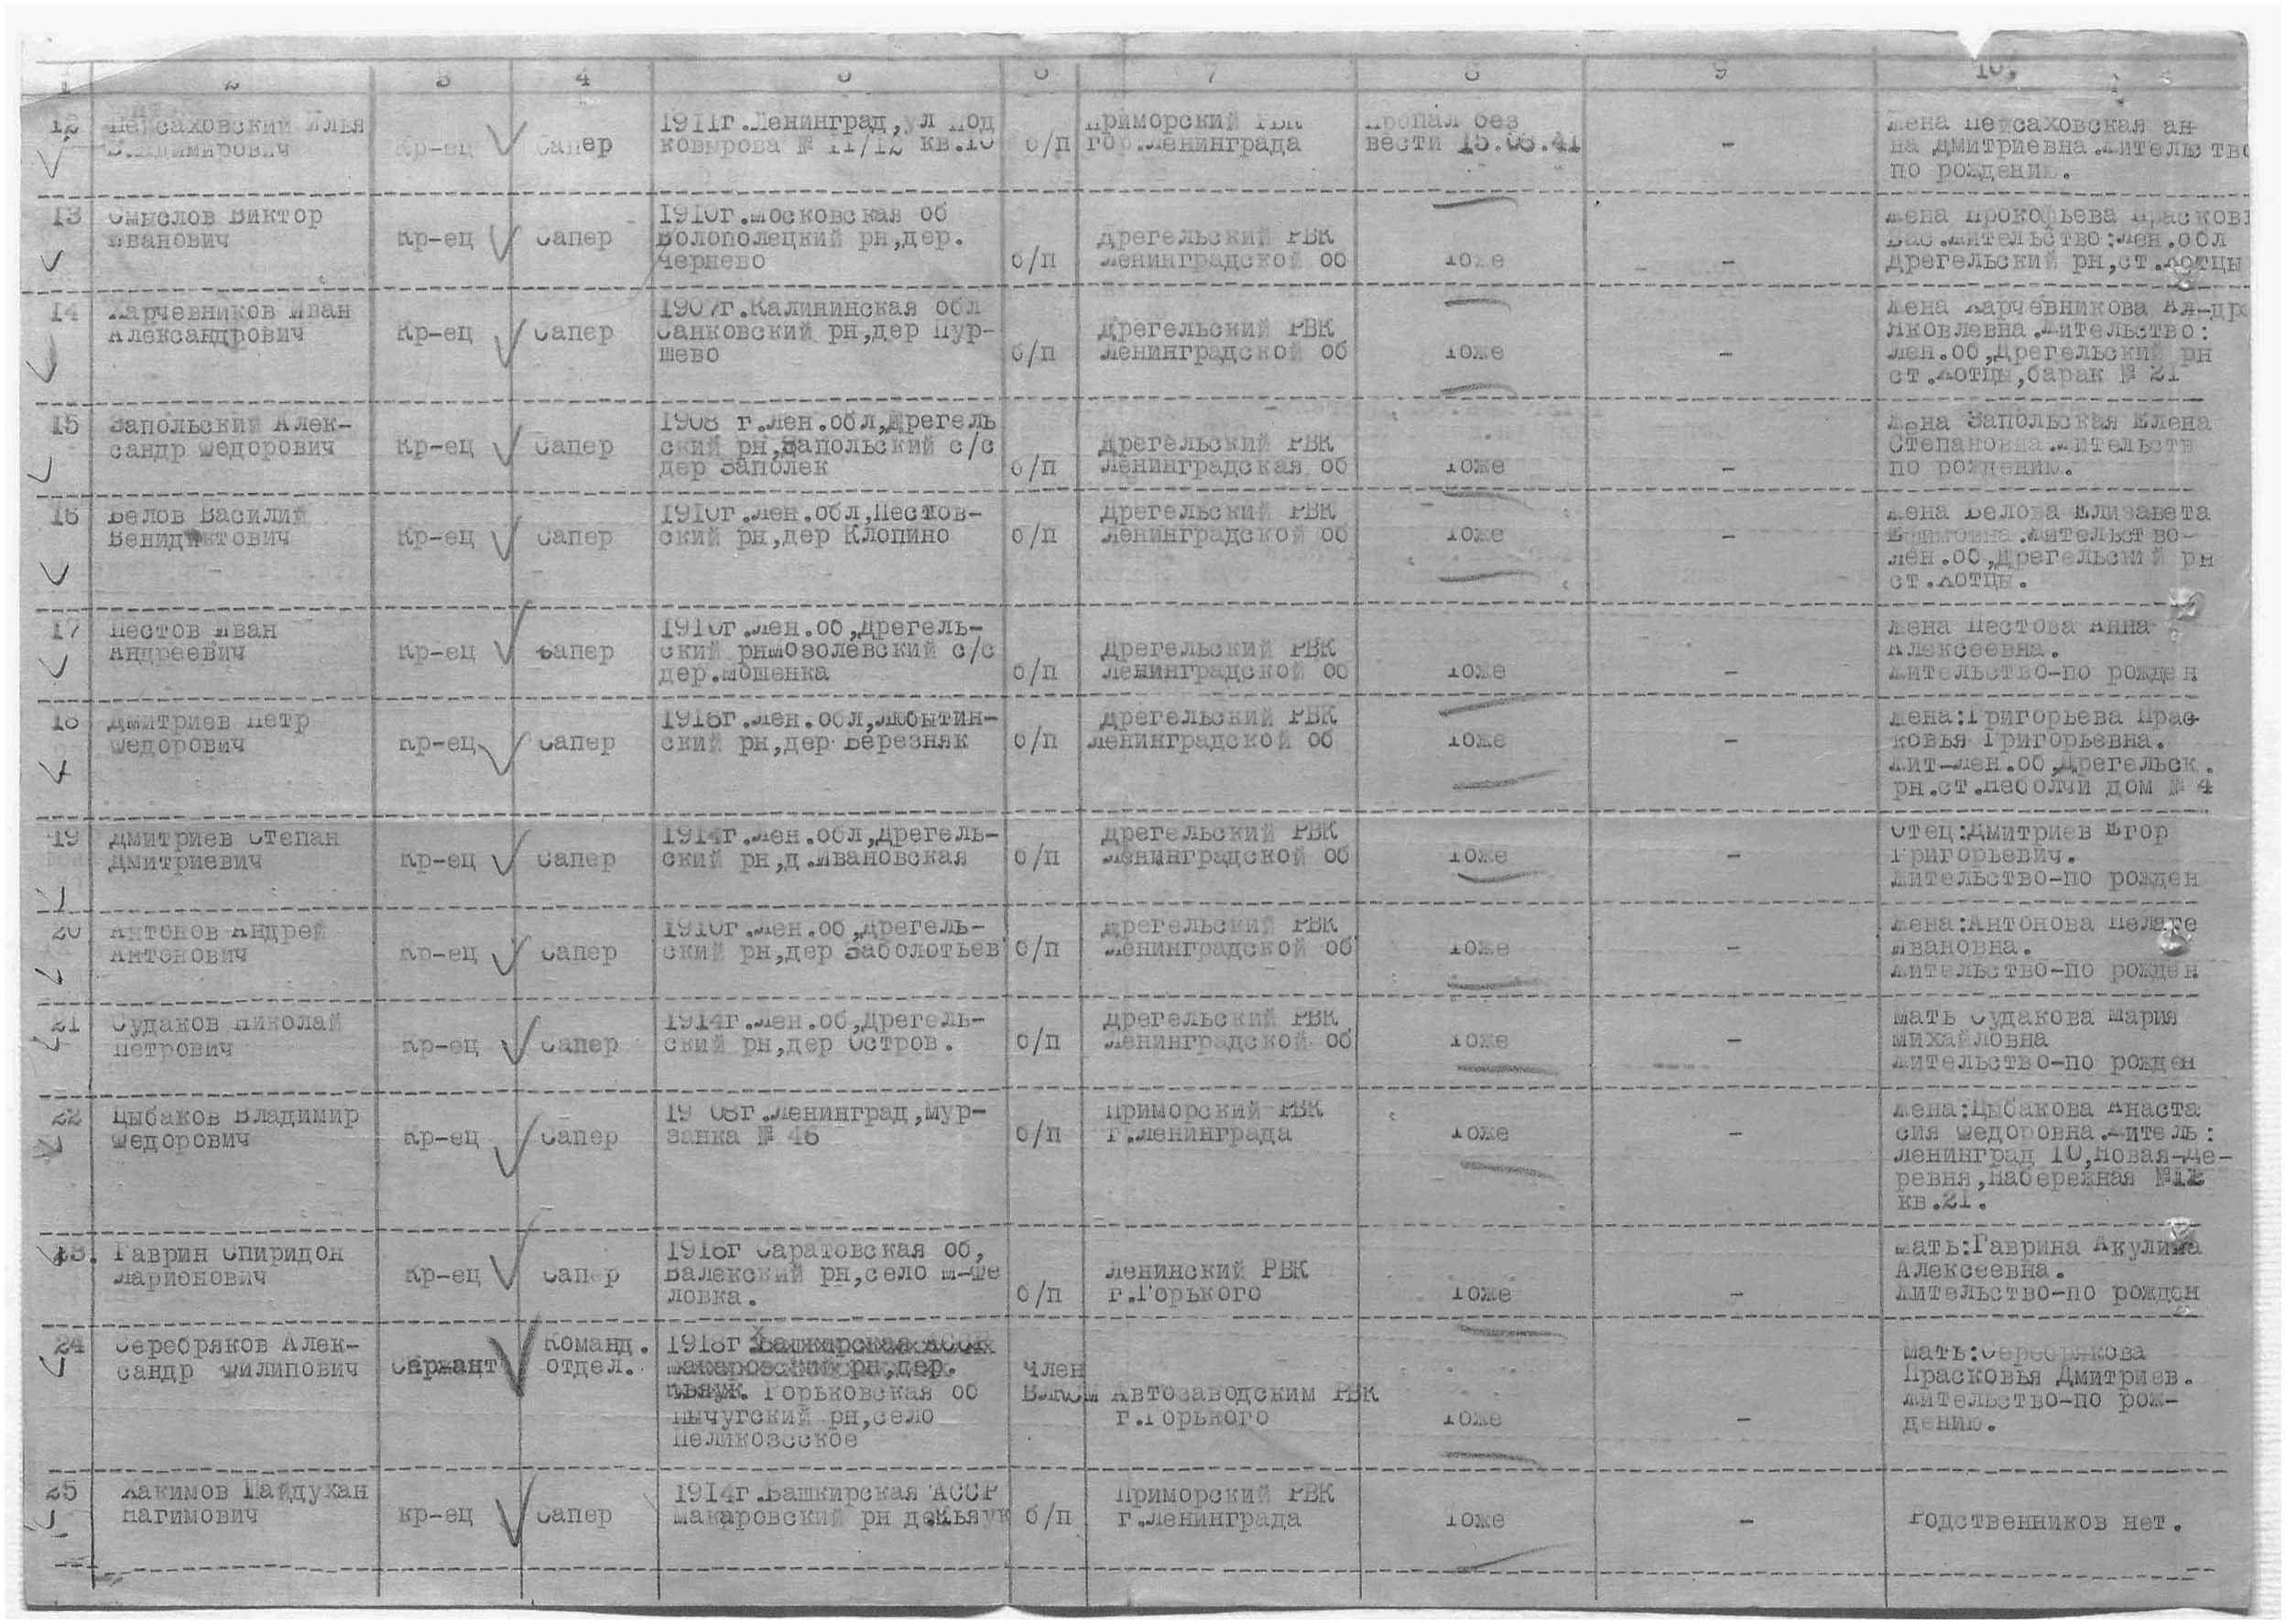 1 2 3 4 5 6 7 8 9 10.
12 Пейсаховский Илья
Владимирович
Кр-ец
Сапер
1911г.Ленинград,ул Под
ковырова № 11/12 кв.10
б/п
Приморский РВК
гор.Ленинграда
Пропал без
вести 15.08.41
-
Жена Пейсаховская Ан-
на Дмитриевна.Жительство
по рождению.
13 Смыслов Виктор
Иванович
Кр-ец
Сапер
1910г.Московская об
Волополецкий рн,дер.
Чернево
б/п
Дрегельский РВК
Ленинградской об
Тоже
-
Жена Прокофьева Прасковь
Вас.Жительство:Лен.обл
Дрегельский рн,ст.Хотцы
14 Харчевников Иван
Александрович
Кр-ец
Сапер
1907г.Калининская обл
Санковский рн,дер Пур-
шево
б/п
Дрегельский РВК
Ленинградской об
Тоже
-
Жена Харчевникова Ал-др
Яковлевна.Жительство:
Лен.об,Дрегельский рн
ст.Хотцы,барак № 21
15 Запольский Алек-
сандр Федорович
Кр-ец
Сапер
1908 г.Лен.обл,Дрегель
ский рн,Запольский с/с
дер Заполек
б/п
Дрегельский РВК
Ленинградская об
Тоже
-
Жена Запольская Елена
Степановна.Жительств
по рождению.
16 Белов Василий
Венидиктович
Кр-ец
Сапер
1910г.Лен.обл,Пестов-
ский рн,дер Клопино
б/п
Дрегельский РВК
Ленинградской об
Тоже
-
Жена Белова Елизавета
Ефимовна.Жительство-
Лен.об,Дрегельский рн
ст.Хотцы.
17 Пестов Иван
Андреевич
Кр-ец
Сапер
1910г.Лен.об,Дрегель-
ский рнМозолевский с/с
дер.Мошенка
б/п
Дрегельский РВК
Ленинградской об
Тоже
-
Жена Пестова Анна
Алексеевна.
Жительство-по рожден
18 Дмитриев Петр
Федорович
Кр-ец
Сапер
1916г.Лен.обл,Любытин-
ский рн,дер Березняк
б/п
Дрегельский РВК
Ленинградской об
Тоже
-
Жена:Григорьева Прас-
ковья Григорьевна.
Жит-Лен.об,Дрегельск.
рн.ст.Неболчи дом № 4
19 Дмитриев Степан
Дмитриевич
Кр-ец
Сапер
1914г.Лен.обл,Дрегель-
ский рн,д.Ивановская
б/п
Дрегельский РВК
Ленинградской об
Тоже
-
Отец:Дмитриев Егор
Григорьевич.
Жительство-по рожден
20 Антонов Андрей
Антонович
Кр-ец
Сапер
1910г.Лен.об,Дрегель-
ский рн,дер Заболотьев
б/п
Дрегельский РВК
Ленинградской об
Тоже
-
Жена:Антонова Пелаге
Ивановна.
Жительство-по рожден
21 Судаков Николай
Петрович
Кр-ец
Сапер
1914г.Лен.об,Дрегель-
ский рн,дер Остров.
б/п
Дрегельский РВК
Ленинградской об
Тоже
-
Мать Судакова Мария
Михайловна
Жительство-по рожден
22 Цыбаков Владимир
Федорович
Кр-ец
Сапер
19 08г.Ленинград,Мур-
занка № 46
б/п
Приморский РВК
г.Ленинграда
Тоже
-
Жена:Цыбакова Анаста
сия Федоровна.Житель:
Ленинград 10,Новая-Де-
ревня,Набережная №
кв.21.
23. Гаврин Спиридон
Ларионович
Кр-ец
Сапер
1916г Саратовская об,
Валекский рн,село М-Ще
ловка.
б/п
Ленинский РВК
г.Горького
Тоже
-
Мать:Гаврина Акулина
Алексеевна.
Жительство-по рожден
24 Серебряков Алек-
сандр Филипович
Сержант
Команд.
отдел.
1918г Башкирская АССР
Макаровский рн,дер.
Горьковская об
Пычугский рн,село
Пеликозсское
Член
ВЛКСМ
Автозаводским РВК
г.Горького
Тоже
-
Мать:Серебрякова
Прасковья Дмитриев.
Жительство-по рож-
дению.
25 Хакимов Пайдухан
Нагимович
Кр-ец
Сапер
1914г.Башкирская АССР
Макаровский рн
б/п
Приморский РВК
г.Ленинграда
Тоже
-
Родственников нет.